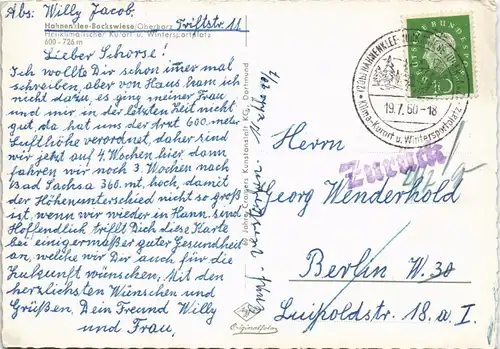 Abs: Willy Jacob.
Triftstr. 11
Hahnenklee-Bockswiese/Oberharz
Heilklimatischer Kurort u. Wintersportplatz
600 - 726 m
Lieber Schorse!
Ich wollte Dir schon immer mal
schreiben, aber von Haus kam ich
nicht dazu, es ging meiner Frau
und mir in der letzten Zeit nicht
gut, da hat uns der Arzt 600 meter
Lufthöhe verordnet, daher sind
wir jetzt auf 4. Wochen hier dann
fahren wir noch 3. Wochen nach
Bad Sachsa 360. mt. hoch, damit
der Höhenunterschied nicht so groß
ist, wenn wir wieder in Hann. send
Hoffendlich trifft Dich diese Karte
bei einigermaßen guter Gesundheit
an, welche wir Dir auch für die
Zukunft wünschen, Mit den
herzlichsten Wünschen und
Grüßen. Dein Freund Willy
und Frau.
60 Jahre Cramers Kunstanstalt KG., Dortmund
Empf. verstorben.
DEUTSCHE BUNDESPOST
HAHNENKLEE-BOCKSWIESE
19.7.60-18
Heilklima-Kurort u. Wintersportplatz
Zurück
Herrn
Georg Wenderhold
Berlin W. 30
Luipoldstr. 18. a I
Agfa
Originalfoto